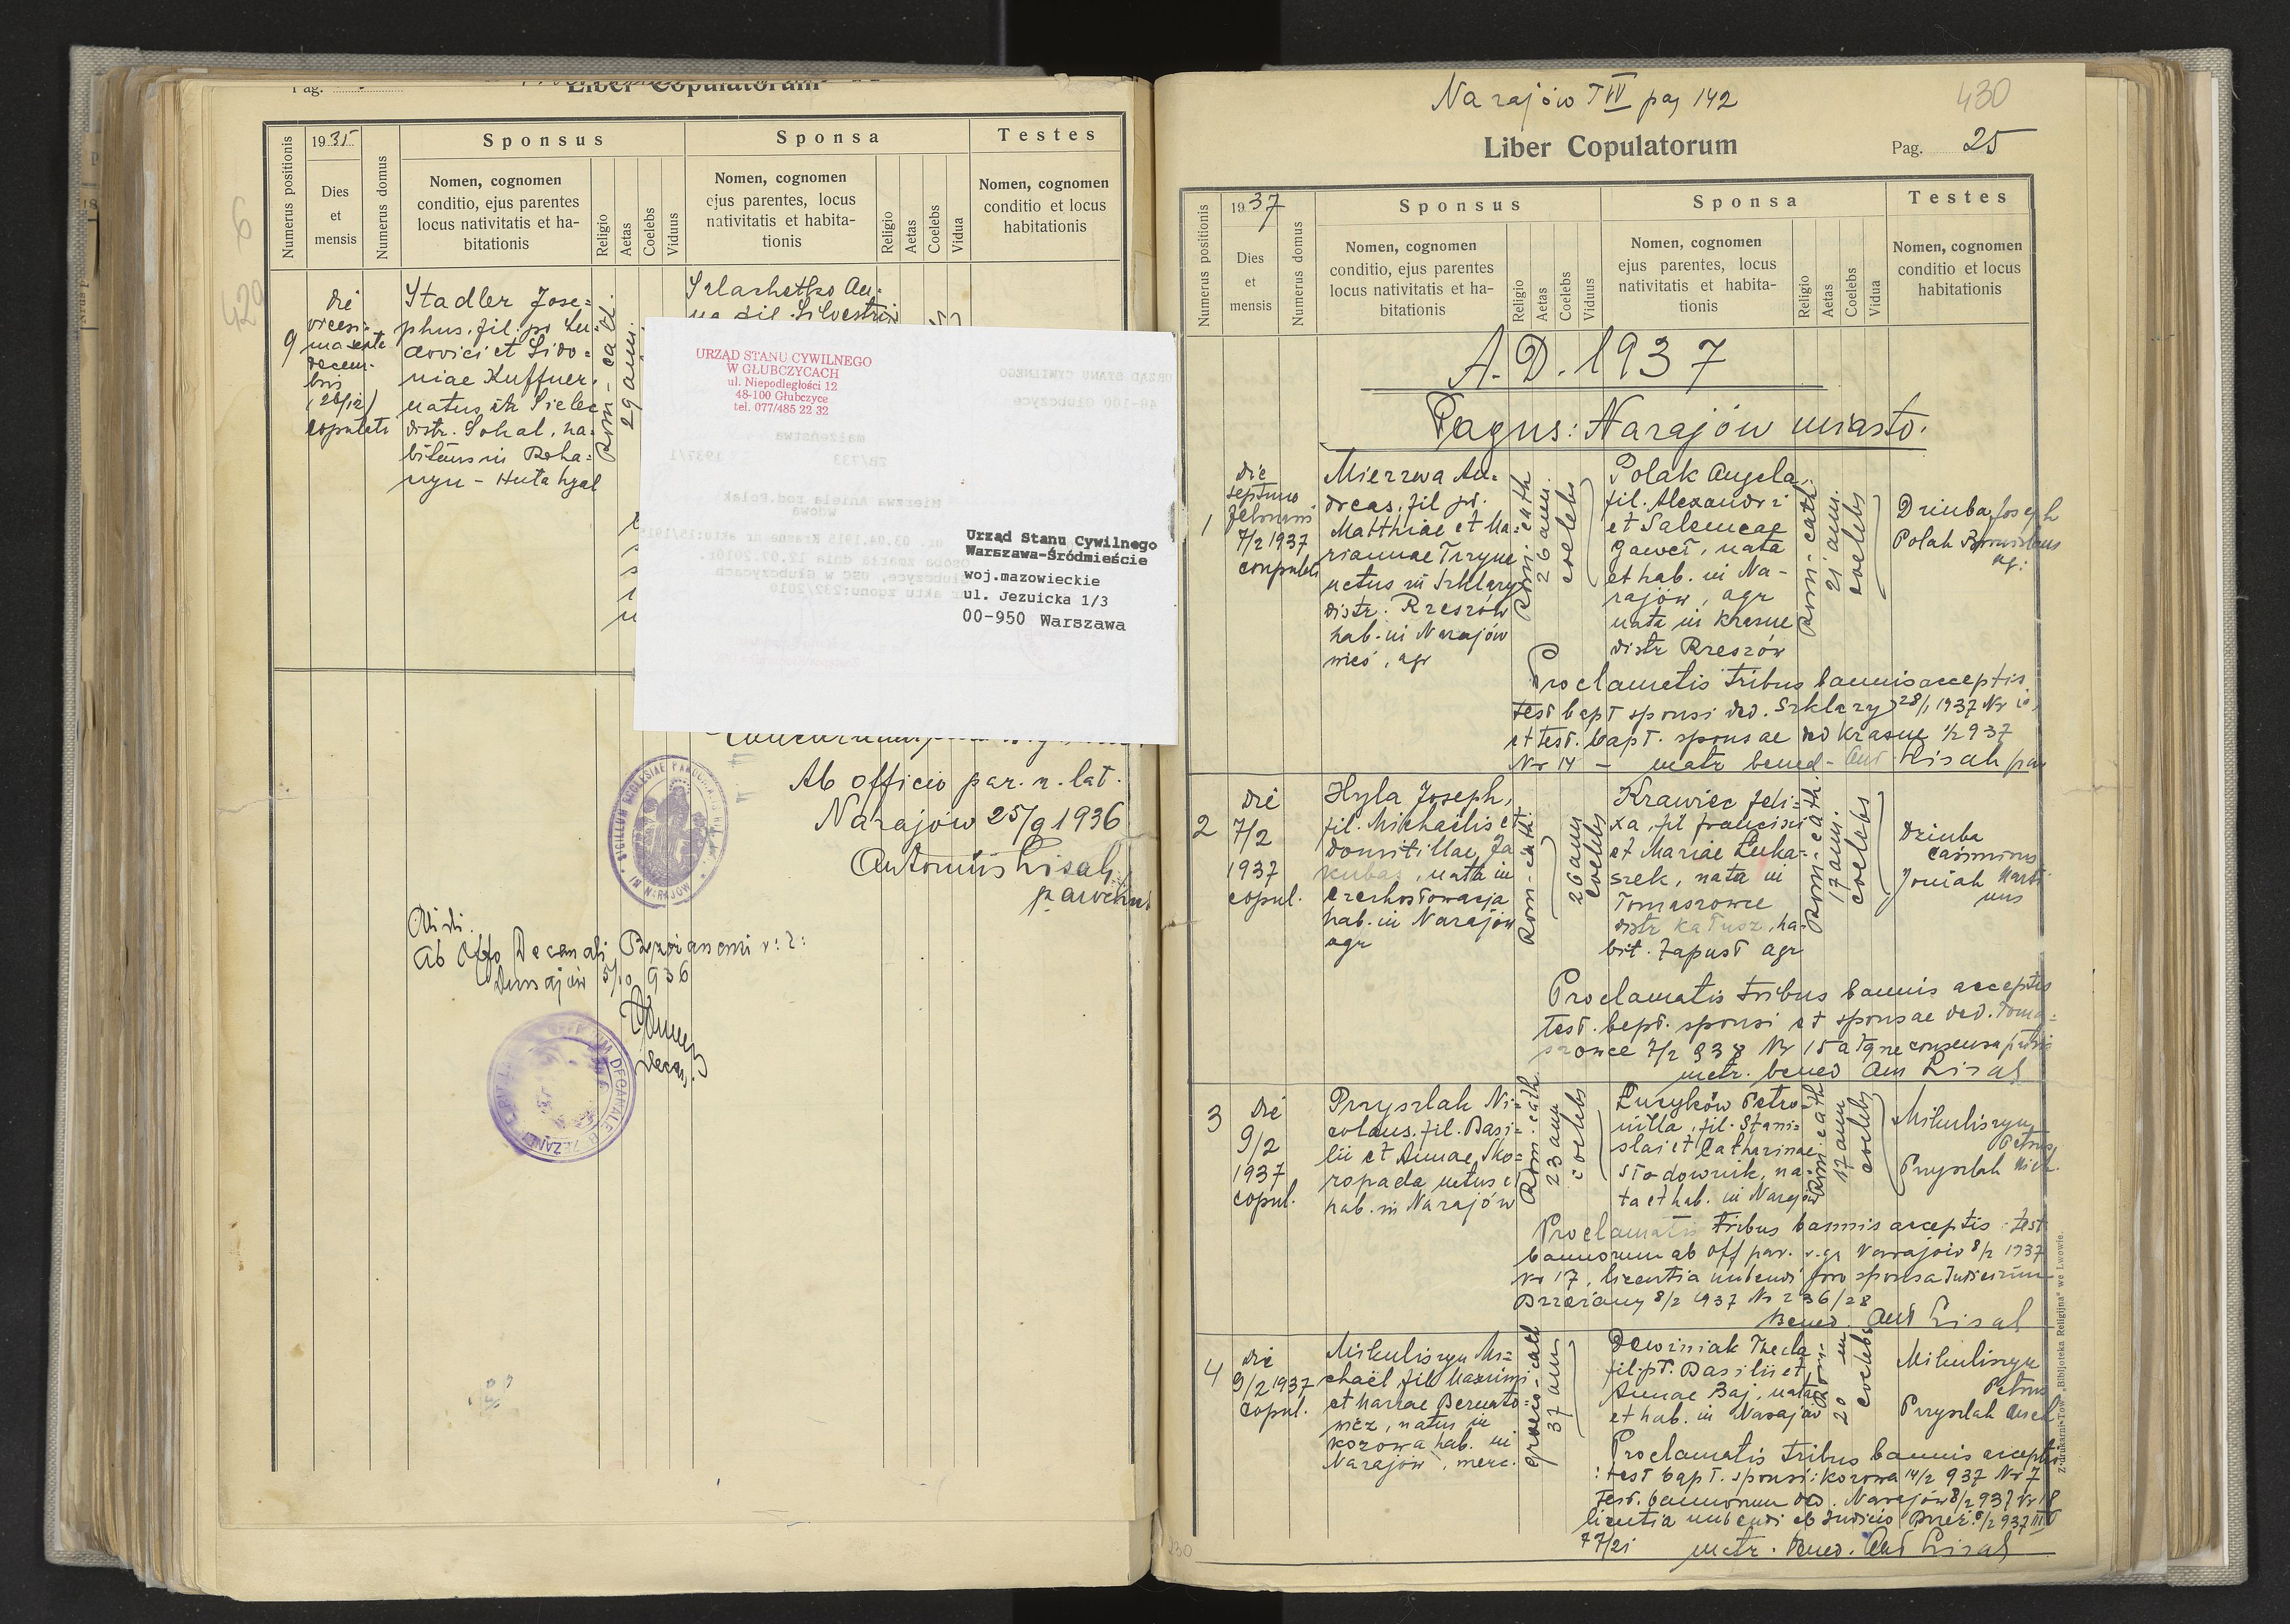 Pag.
Liber Copulatorum
Numerus positionis
1935
Dies
et
mensis
Numerus domus
Sponsus
Nomen, cognomen
conditio, ejus parentes
locus nativitatis et ha-
bitationis
Religio
Aetas
Coelebs
Viduus
Sponsa
Nomen, cognomen
ejus parentes, locus
nativitatis et habita-
tionis
Religio
Aetas
Coelebs
Vidua
Testes
Nomen, cognomen
conditio et locus
habitationis
9
die
decem-
bris
(26/12)
copulati
Stadler Jose=
phus. fil. pt Lu=
dovici et Sido=
niae Kuffner.
natus in Sielec
distr. Sokal, ha=
bitans in Roha=
tyn - Huta
Rom-cath.
29 ann.
Szlachetko An=
na fil. Silvestri
URZĄD STANU CYWILNEGO
W GŁUBCZYCACH
ul. Niepodległości 12
48-100 Głubczyce
tel. 077/485 22 32
Urząd Stanu Cywilnego
Warszawa-Śródmieście
woj.mazowieckie
ul. Jezuicka 1/3
00-950 Warszawa
Ab officio par. r. lat.
Narajów 25/9 1936
Antonius Lisak
parochus
Vidi.
Ab Offo Decanali Brzeżanensi r: l:
Dunajów 5/10 936
Narajów T IV pag 142
430
Liber Copulatorum
Pag. 25
Numerus positionis
1937
Dies
et
mensis
Numerus domus
Sponsus
Nomen, cognomen
conditio, ejus parentes
locus nativitatis et ha-
bitationis
Religio
Aetas
Coelebs
Viduus
Sponsa
Nomen, cognomen
ejus parentes, locus
nativitatis et habita-
tionis
Religio
Aetas
Coelebs
Vidua
Testes
Nomen, cognomen
conditio et locus
habitationis
A. D. 1937
Pagus: Narajów miasto.
1
die
septimo
februarii
7/2 1937
copulati
Mierzwa An=
dreas, fil pt.
Matthiae et Ma=
riannae Trzyna
natus in Szklary
distr. Rzeszów
hab. in Narajów
wieś, agr
Rom-cath
26 ann.
coelebs
Polak Angela,
fil. Alexandri
et Salomeae
Gaweł, nata
et hab. in Na-
rajów, agr
nata in Krasne
distr Rzeszów
Rom-cath
21 ann.
coelebs
Dziuba Joseph
Polak Bronislaus
agr.
Proclamatis tribus bannis acceptis
test bapt sponsi ded. Szklary 28/1 1937 Nr 10,
et test. bapt. sponsae ded Krasne 1/2 937
Nr 14 - matr bened - Ant Lisak par
2
die
7/2
1937
copul.
Hyla Joseph,
fil. Michaelis et
Domitillae Ja
kubas, nata in
Czechosłowacja
hab. in Narajów
agr
Rom-cath.
26 ann
coelebs
Krawiec Feli=
xa, fil Francisci
et Mariae Łuka=
szek, nata in
Tomaszowce
distr Kałusz, ha=
bit. Zapust agr
Rom-cath.
17 ann.
coelebs
Dziuba
Casimirus
Joniak Marti
nus
Proclamatis tribus bannis acceptis
test. bapt. sponsi et sponsae ded. Toma=
szowce 7/2 937 Nr 15 atque consensu
matr. bened Ant Lisak
3
die
9/2
1937
copul.
Przyszlak Ni=
colaus. fil. Basi=
lii et Annae Sko=
ropada natus et
hab. in Narajów
Rom. cath.
23 ann
coelebs
Łuczyków Petro=
nilla, fil. Stani=
slai et Catharinae
Słodownik, na=
ta et hab. in Narajów
Rom cath
17 ann
coelebs
Mikuliszyn
Petrus
Przyszlak Mich.
Proclamatis tribus bannis acceptis test
bannorum ab off par. r. gr Narajów 8/2 1937
Nr 17, licentia nubendi pro sponsa Judicium
Brzeżany 8/2 1937 N 236/28
Bened. Ant Lisak
4
die
9/2 1937
copul.
Mikuliszyn Mi=
chaël, fil Maximi
et Mariae Bernato=
wicz, natus in
Kozowa hab. in
Narajów, merc.
graeco-cath
37 ann
Dewiniak Thecla
fil. pt. Basilii et
Annae Baj, nata
et hab. in Narajów
Rom-
20
coelebs
Mikuliszyn
Petrus
Przyszlak
Proclamatis tribus bannis acceptis
test bapt. sponsi: Kozowa 14/2 937 Nr 7
test. bannorum ded. Narajów 8/2 937 Nr 18
licentia nubendi ab Judicio Brzeż. 8/2 937 III
77/21 matr. Bened. Ant Lisak
Z drukarni Tow. „Bibljoteka Religijna" we Lwowie.